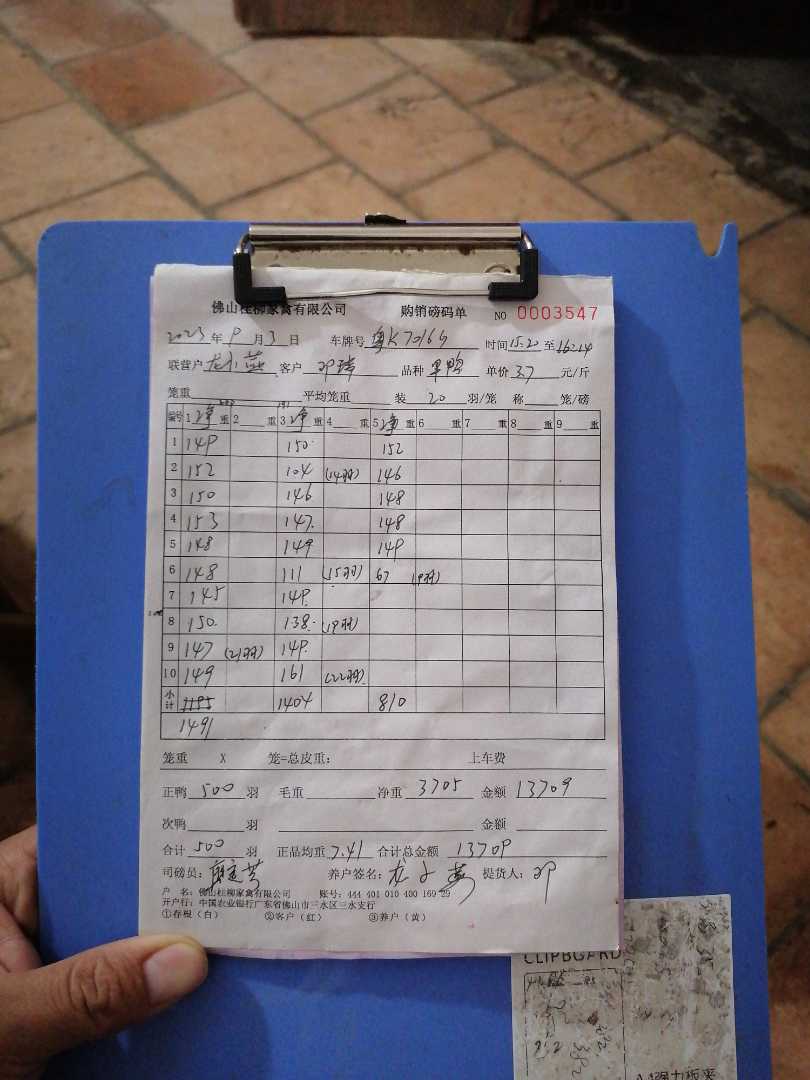 佛山桂柳家禽有限公司 购销磅码单 NO 0003547
2023年9月3日 车牌号 粤K70165 时间15.20至16.14
联营户 龙小燕 客户 邓 品种 单价3.7元/斤
笼重 平均笼重 装 20 羽/笼 称 笼/磅
编号 1 净重 2 重 3 净重 4 重 5 净重 6 重 7 重 8 重 9 重
1 149 150 152
2 152 104 (14羽) 146
3 150 146 148
4 153 147 148
5 148 149 149
6 148 111 (15羽) 67 (9羽)
7 145 149
8 150 138 (19羽)
9 147 (21羽) 149
10 149 161 (22羽)
小计 1404 810
1491
笼重 X 笼=总皮重: 上车费
正鸭 500 羽 毛重 净重 3705 金额 13709
次鸭 羽 金额
合计 500 羽 正品均重 7.41 合计总金额 13709
司磅员: 养户签名: 龙小燕 提货人: 邓
户 名: 佛山桂柳家禽有限公司 账号: 444 401 010 400 169 29
开户行: 中国农业银行广东省佛山市三水区三水支行
①存根(白) ②客户(红) ③养户(黄)
CLIPBOARD
A4强力板夹